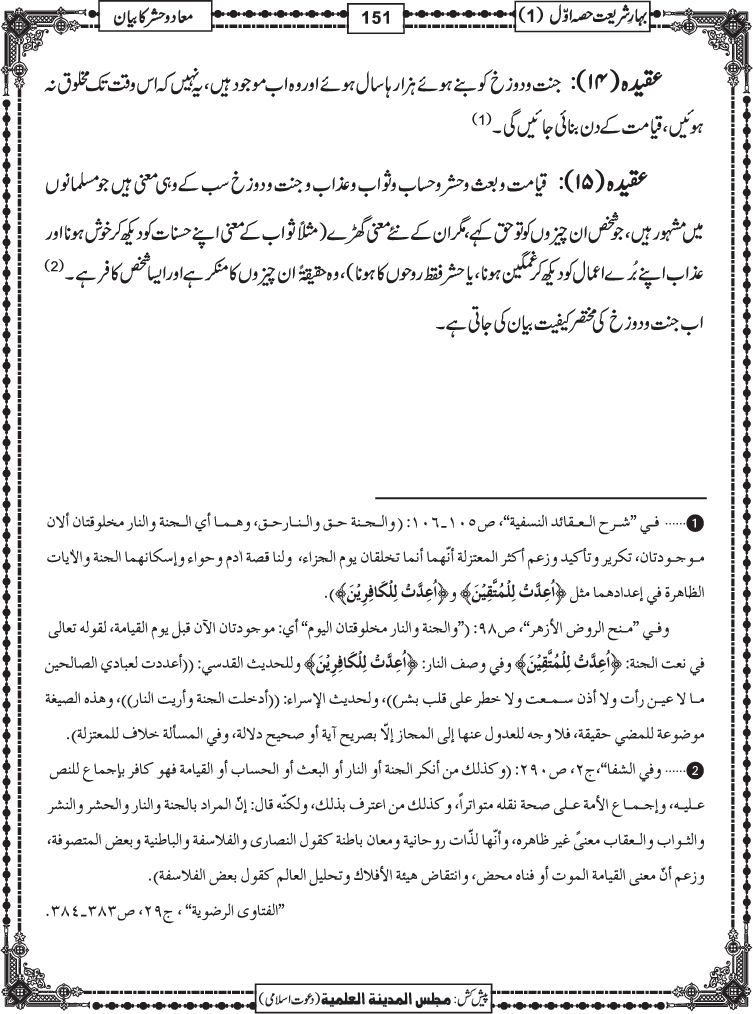 بہارِ شریعت حصہ اوّل (1)
151
معاد و حشر کا بیان
عقیدہ (۱۴): جنت و دوزخ کو بنے ہوئے ہزار ہا سال ہوئے اور وہ اب موجود ہیں، یہ نہیں کہ اس وقت تک مخلوق نہ
ہوئیں، قیامت کے دن بنائی جائیں گی۔ (1)
عقیدہ (۱۵): قیامت و بعث و حشر و حساب و ثواب و عذاب و جنت و دوزخ سب کے وہی معنی ہیں جو مسلمانوں
میں مشہور ہیں، جو شخص ان چیزوں کو تو حق کہے، مگر ان کے نئے معنی گھڑے (مثلاً ثواب کے معنی اپنے حسنات کو دیکھ کر خوش ہونا اور
عذاب اپنے بُرے اعمال کو دیکھ کر غمگین ہونا، یا حشر فقط روحوں کا ہونا)، وہ حقیقۃً ان چیزوں کا منکر ہے اور ایسا شخص کافر ہے۔ (2)
اب جنت و دوزخ کی مختصر کیفیت بیان کی جاتی ہے۔
1 ...... فـي ”شـرح الـعـقائد النسفية“، ص١٠٥ـ١٠٦: (والـجـنة حـق والـنـارحـق، وهـمـا أي الـجنة والنار مخلوقتان ألان
مـوجـودتان، تكرير وتأكيد وزعم أكثر المعتزلة أنّهما أنما تخلقان يوم الجزاء، ولنا قصة ادم وحواء وإسكانهما الجنة والآيات
الظاهرة في إعدادهما مثل ﴿اُعِدَّتْ لِلْمُتَّقِيْنَ﴾ و ﴿اُعِدَّتْ لِلْكَافِرِيْنَ﴾).
وفـي ”مـنح الروض الأزهر“، ص٩٨: (”والجنة والنار مخلوقتان اليوم“ أي: موجودتان الآن قبل يوم القيامة، لقوله تعالى
في نعت الجنة: ﴿اُعِدَّتْ لِلْمُتَّقِيْنَ﴾ وفي وصف النار: ﴿اُعِدَّتْ لِلْكَافِرِيْنَ﴾ وللحديث القدسي: ((أعددت لعبادي الصالحين
مـا لا عيـن رأت ولا أذن سـمـعت ولا خطر على قلب بشر))، ولحديث الإسراء: ((أدخلت الجنة وأريت النار))، وهذه الصيغة
موضوعة للمضي حقيقة، فلا وجه للعدول عنها إلى المجاز إلّا بصريح آية أو صحيح دلالة، وفي المسألة خلاف للمعتزلة).
2 ...... وفي الشفا“، ج٢، ص٢٩٠: (وكذلك من أنكر الجنة أو النار أو البعث أو الحساب أو القيامة فهو كافر بإجماع للنص
عليـه، وإجـمـاع الأمة عـلـى صحة نقله متواتراً، وكذلك من اعترف بذلك، ولكنّه قال: إنّ المراد بالجنة والنار والحشر والنشر
والثـواب والـعقاب معنىً غير ظاهره، وأنّها لذّات روحانية ومعان باطنة كقول النصارى والفلاسفة والباطنية وبعض المتصوفة،
وزعم أنّ معنى القيامة الموت أو فناه محض، وانتقاض هيئة الأفلاك وتحليل العالم كقول بعض الفلاسفة).
”الفتاوى الرضوية“، ج٢٩، ص٣٨٣ـ٣٨٤.
پیش کش: مجلس المدينة العلمية (دعوت اسلامی)